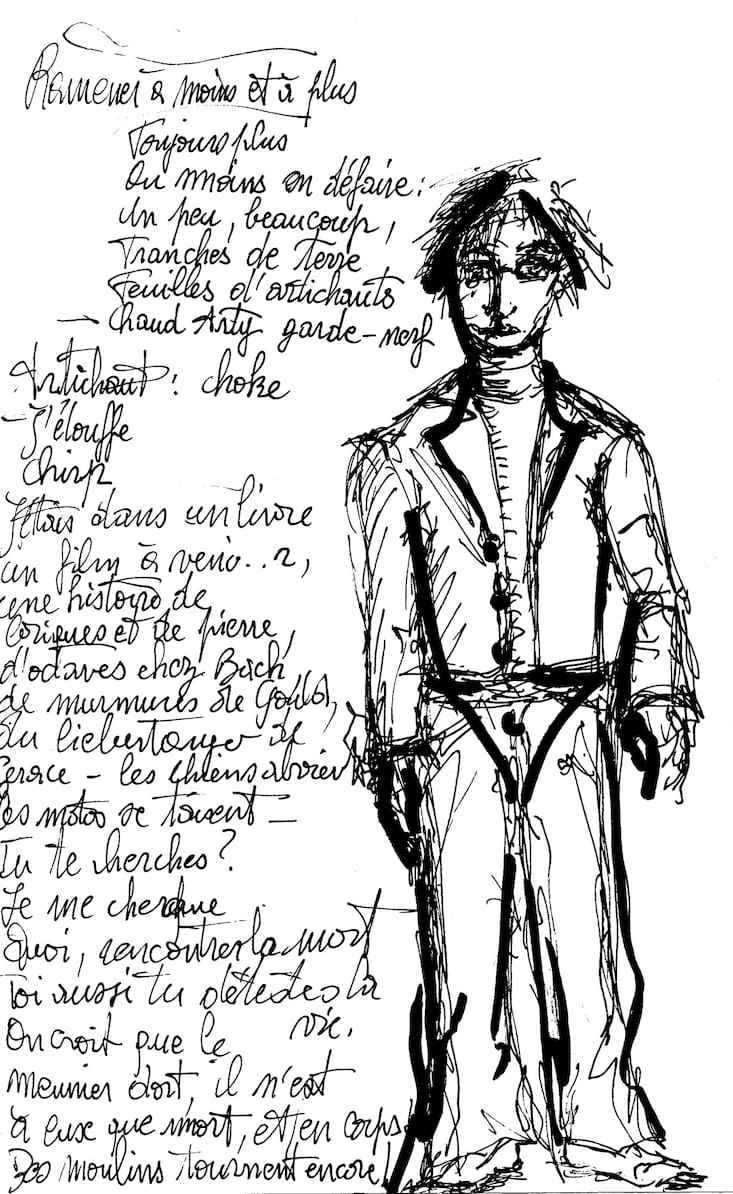 Ramener à moins et à plus
Toujours plus
Ou moins on défaire :
Un peu, beaucoup,
Tranches de terre
Feuilles d'artichauts
→ Chaud Arty garde-nerf
Artichaut : choke
- J'étouffe
Chirp
J'étais dans un livre
un film à venir..2,
une histoire de
et de pierre,
d'octaves chez Bach
de murmures de Gould,
du liebertango de
Grace - les chiens
les motos se taisent -
Tu te cherches ?
Je me cherche
Quoi, rencontrer la mort
Toi aussi tu détestes la
vie.
On croit que le
meunier dort, il n'est
à eux que mort, et en corps
Des moulins tournent encore !